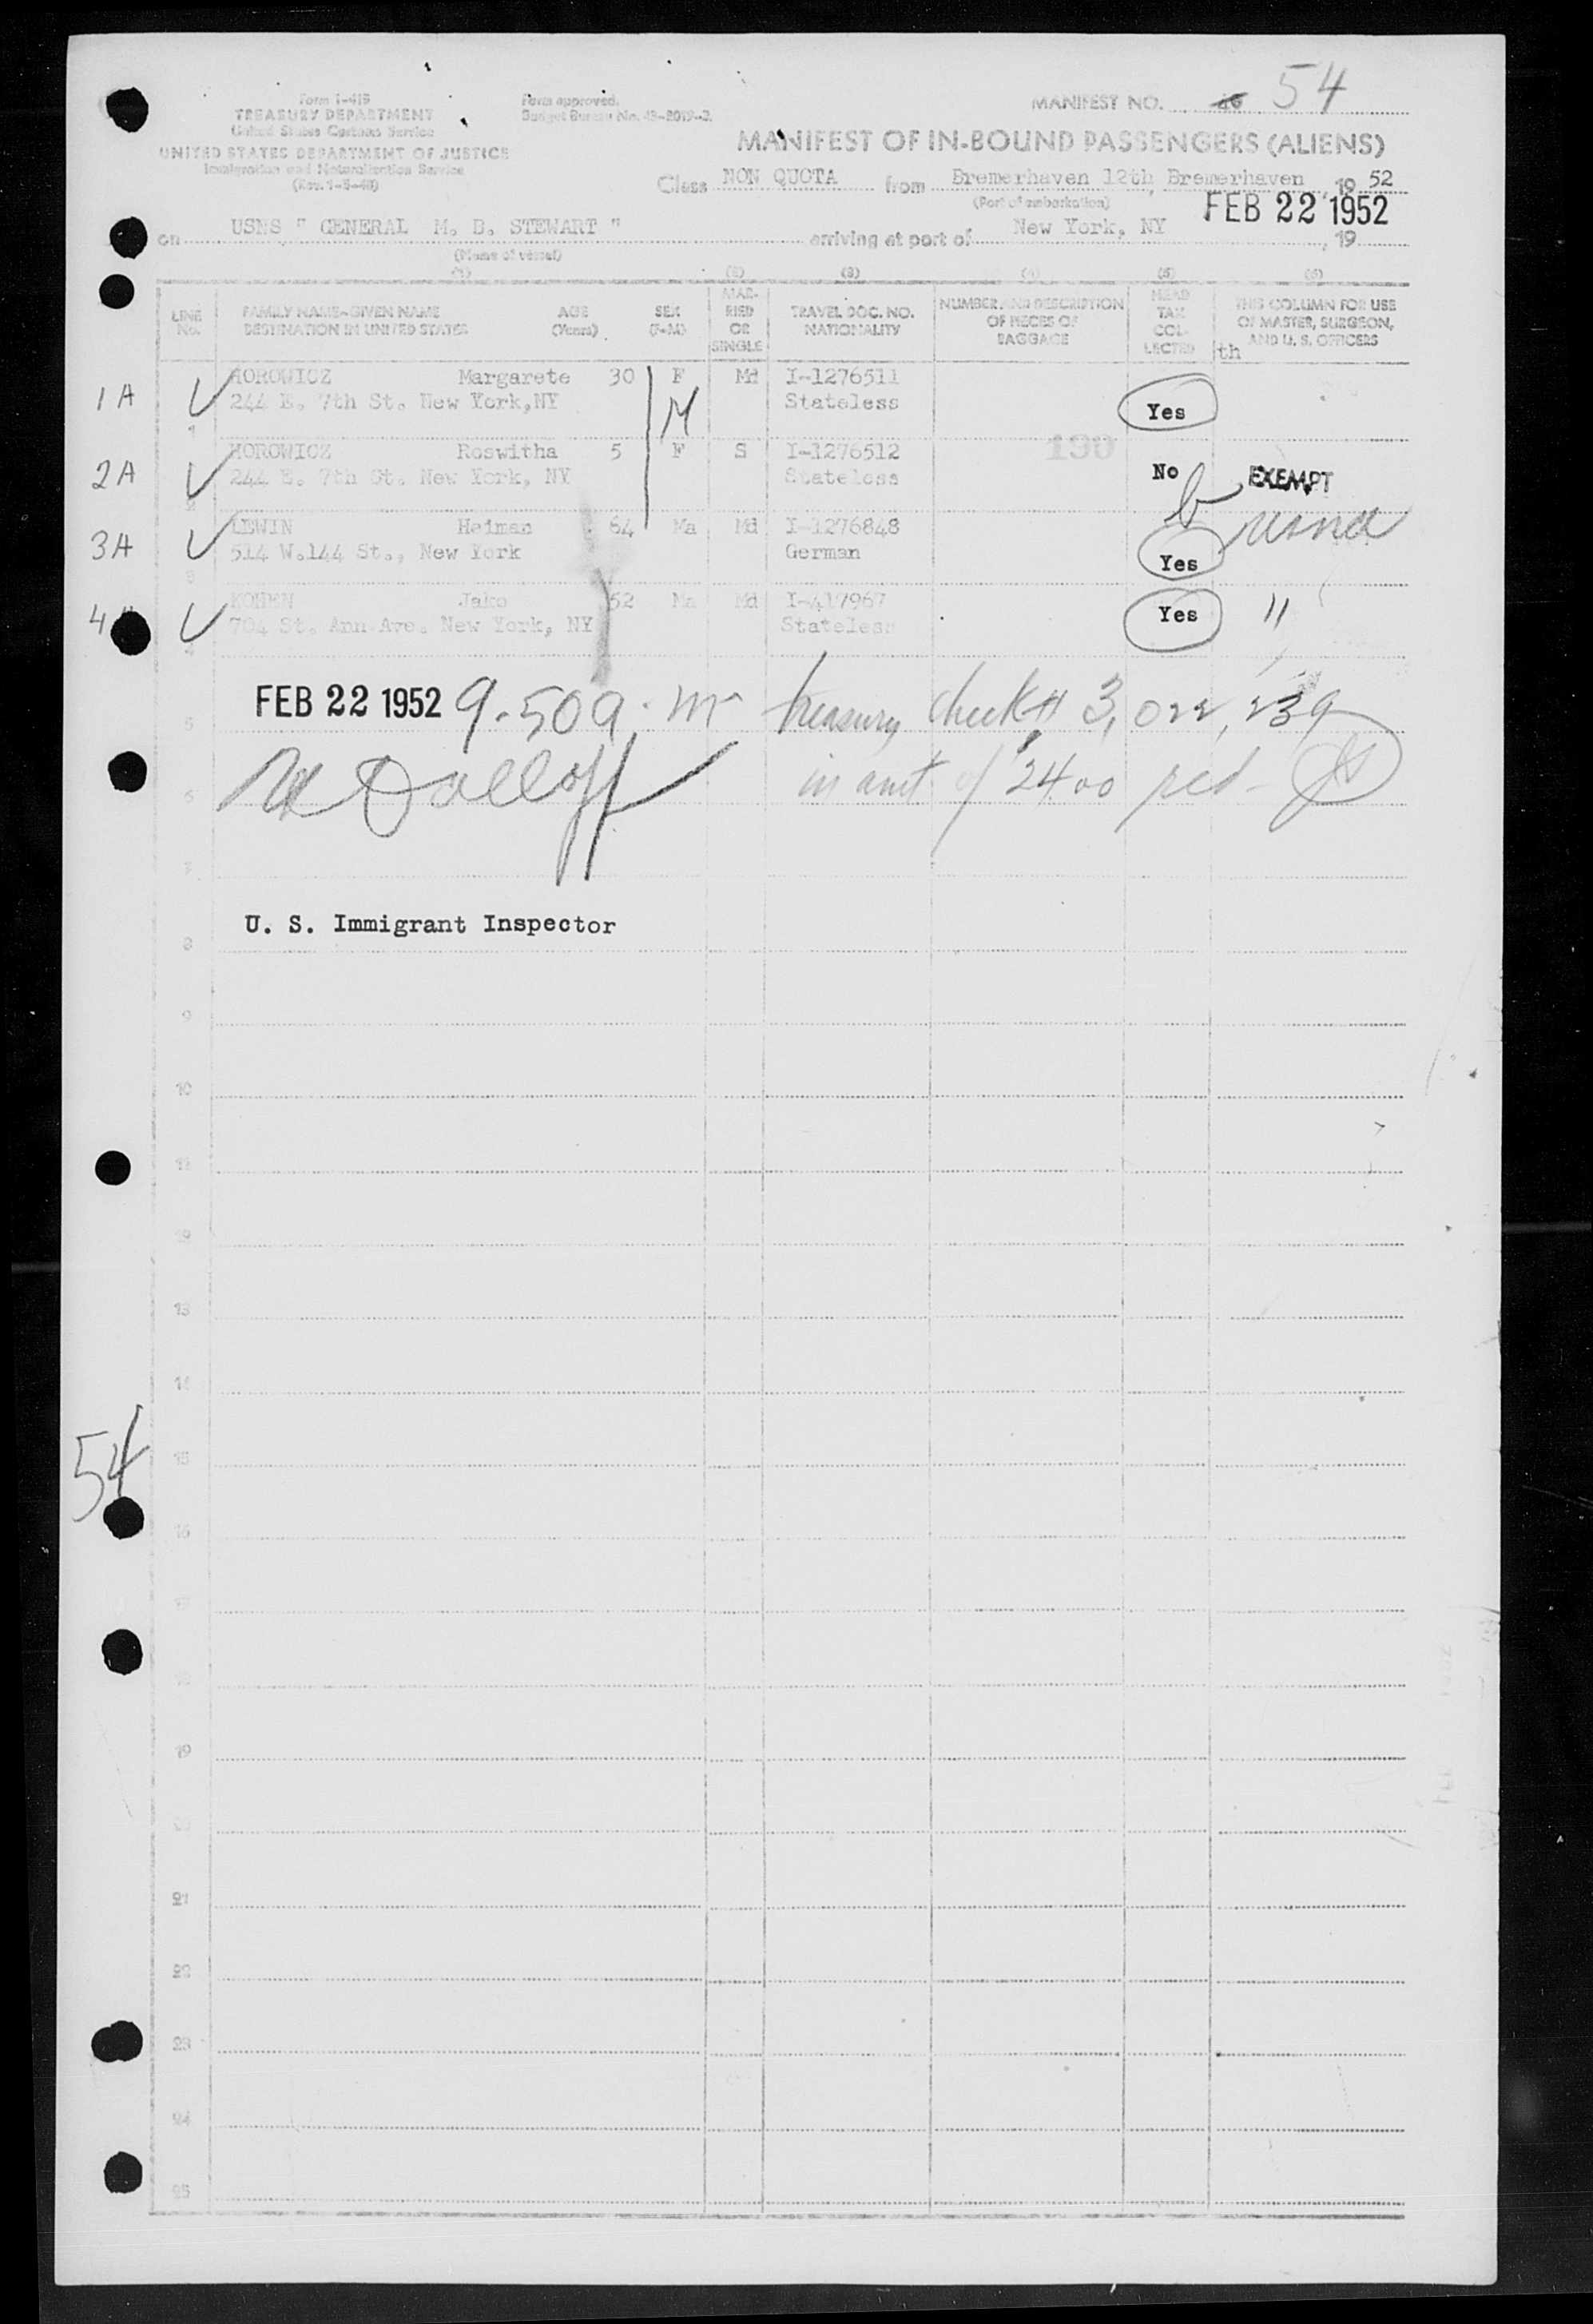 Form I-415
TREASURY DEPARTMENT
United States Customs Service
UNITED STATES DEPARTMENT OF JUSTICE
Immigration and Naturalization Service
Form approved.
Budget Bureau No. 43-R019-2.
MANIFEST NO. 54
MANIFEST OF IN-BOUND PASSENGERS (ALIENS)
Class NON QUOTA from Bremerhaven 12th, Bremerhaven, 19 52
(Port of embarkation)
FEB 22 1952
on USNS " GENERAL M. B. STEWART " arriving at port of New York, NY, 19
(Name of vessel)
(1) (2) (3) (4) (5) (6)
LINE No.
FAMILY NAME-GIVEN NAME
DESTINATION IN UNITED STATES
AGE (Years)
SEX (F-M)
MAR-RIED OR SINGLE
TRAVEL DOC. NO.
NATIONALITY
NUMBER AND DESCRIPTION OF PIECES OF BAGGAGE
HEAD TAX COL-LECTED
THIS COLUMN FOR USE OF MASTER, SURGEON, AND U. S. OFFICERS
th
1A 1 HOROWICZ Margarete 30 F Md I-1276511
244 E. 7th St. New York,NY M Stateless Yes
190
2A 2 HOROWICZ Roswitha 5 F S I-1276512
244 E. 7th St. New York, NY Stateless No EXEMPT
3A 3 LEWIN Heiman 64 Ma Md I-1276848
514 W.144 St., New York German Yes
4A 4 KOHEN Jako 52 Ma Md I-417967
704 St. Ann Ave. New York, NY Stateless Yes "
5 FEB 22 1952 9.50 a.m Treasury check # 3,022,239
6 in amt of $2400 rec'd
7
U. S. Immigrant Inspector
8
9
10
11
12
13
14
54
15
16
17
18
19
20
21
22
23
24
25